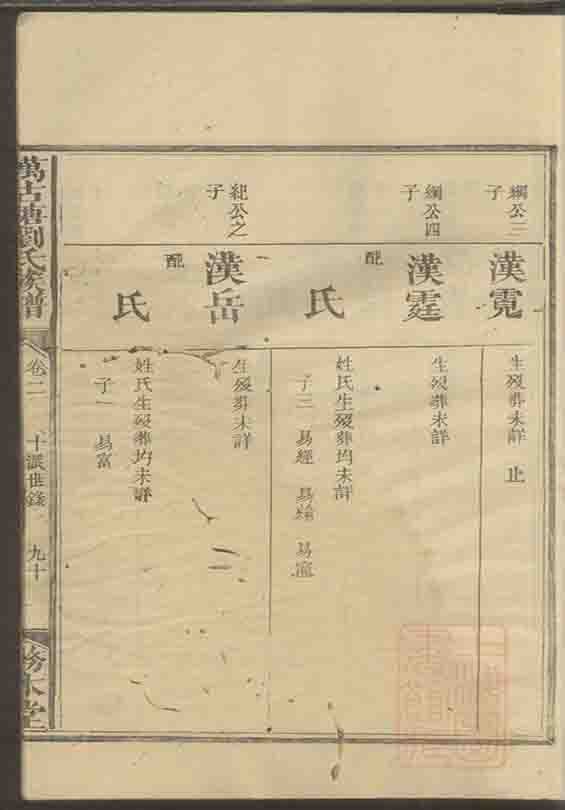 綱公三子
漢霓
生歿葬未詳 止
綱公四子
漢霆
生歿葬未詳
配 氏
姓氏生歿葬均未詳
子三 易經 易綸 易
紀公之子
漢岳
生歿葬未詳
配 氏
姓氏生歿葬均未詳
子一 易富
萬古塘劉氏族譜
卷二 十派世錄 九十
務本堂